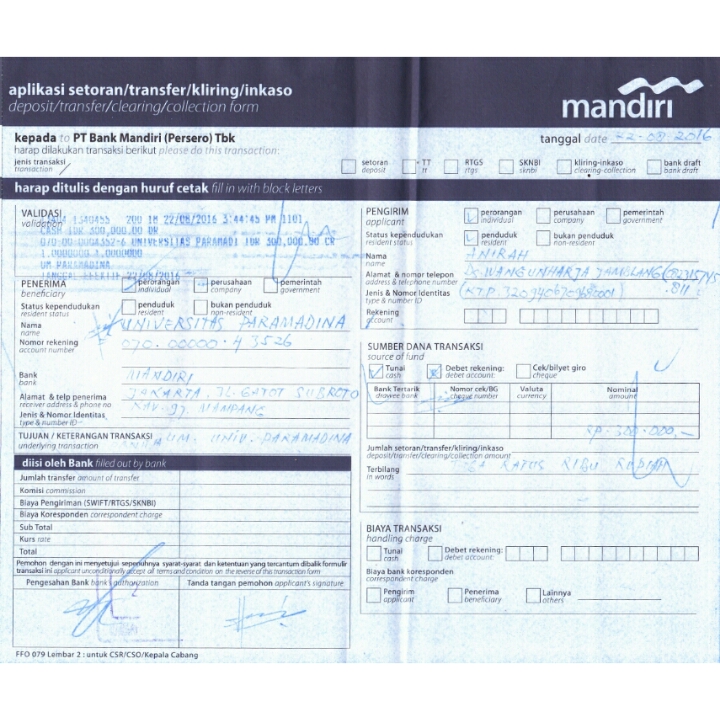 aplikasi setoran/transfer/kliring/inkaso
deposit/transfer/clearing/collection form
mandiri
kepada to PT Bank Mandiri (Persero) Tbk
harap dilakukan transaksi berikut please do this transaction:
tanggal date 22-08-2016
jenis transaksi
transaction
setoran
deposit
TT
tt
RTGS
rtgs
SKNBI
sknbi
kliring-inkaso
clearing-collection
bank draft
bank draft
harap ditulis dengan huruf cetak fill in with block letters
VALIDASI
validation
1340455 200 22/08/2016 3:44:45 PM 1101
CASH IDR 300,000.00 DR
070-00-0004352-6 UNIVERSITAS PARAMADI IDR 300,000.00 CR
1.0000000 1.0000000
UM PARAMADINA
TANGGAL EFEKTIF 22/08/2016
PENERIMA
beneficiary
perorangan
individual
perusahaan
company
pemerintah
government
Status kependudukan
resident status
penduduk
resident
bukan penduduk
non-resident
Nama
name
UNIVERSITAS PARAMADINA
Nomor rekening
account number
070.00000.43526
Bank
bank
MANDIRI
Alamat & telp penerima
receiver address & phone no
JAKARTA. JL. GATOT SUBROTO
KAV.97. MAMPANG
Jenis & Nomor Identitas
type & number ID
TUJUAN / KETERANGAN TRANSAKSI
underlying transaction
UM. UNIV. PARAMADINA
diisi oleh Bank filled out by bank
Jumlah transfer amount of transfer
Komisi commission
Biaya Pengiriman (SWIFT/RTGS/SKNBI)
Biaya Koresponden correspondent charge
Sub Total
Kurs rate
Total
Pemohon dengan ini menyetujui sepenuhnya syarat-syarat dan ketentuan yang tercantum dibalik formulir
transaksi ini applicant unconditionally accept all terms and condition on the reverse of the transaction form
Pengesahan Bank bank authorization
Tanda tangan pemohon applicant's signature
FFO 079 Lembar 2 : untuk CSR/CSO/Kepala Cabang
PENGIRIM
applicant
perorangan
individual
perusahaan
company
pemerintah
government
Status kependudukan
resident status
penduduk
resident
bukan penduduk
non-resident
Nama
name
ANIRAH
Alamat & nomor telepon
address & telephone number
Jenis & Nomor Identitas
type & number ID
Rekening
account
SUMBER DANA TRANSAKSI
source of fund
Tunai
cash
Debet rekening:
debet account:
Cek/bilyet giro
cheque
Bank Tertarik
drawee bank
Nomor cek/BG
cheque number
Valuta
currency
Nominal
amount
Rp. 300.000,-
Jumlah setoran/transfer/kliring/inkaso
deposit/transfer/clearing/collection amount
Terbilang
in words
TIGA RATUS RIBU RUPIAH
BIAYA TRANSAKSI
handling charge
Tunai
cash
Debet rekening:
debet account:
Biaya bank koresponden
correspondent charge
Pengirim
applicant
Penerima
beneficiary
Lainnya
others